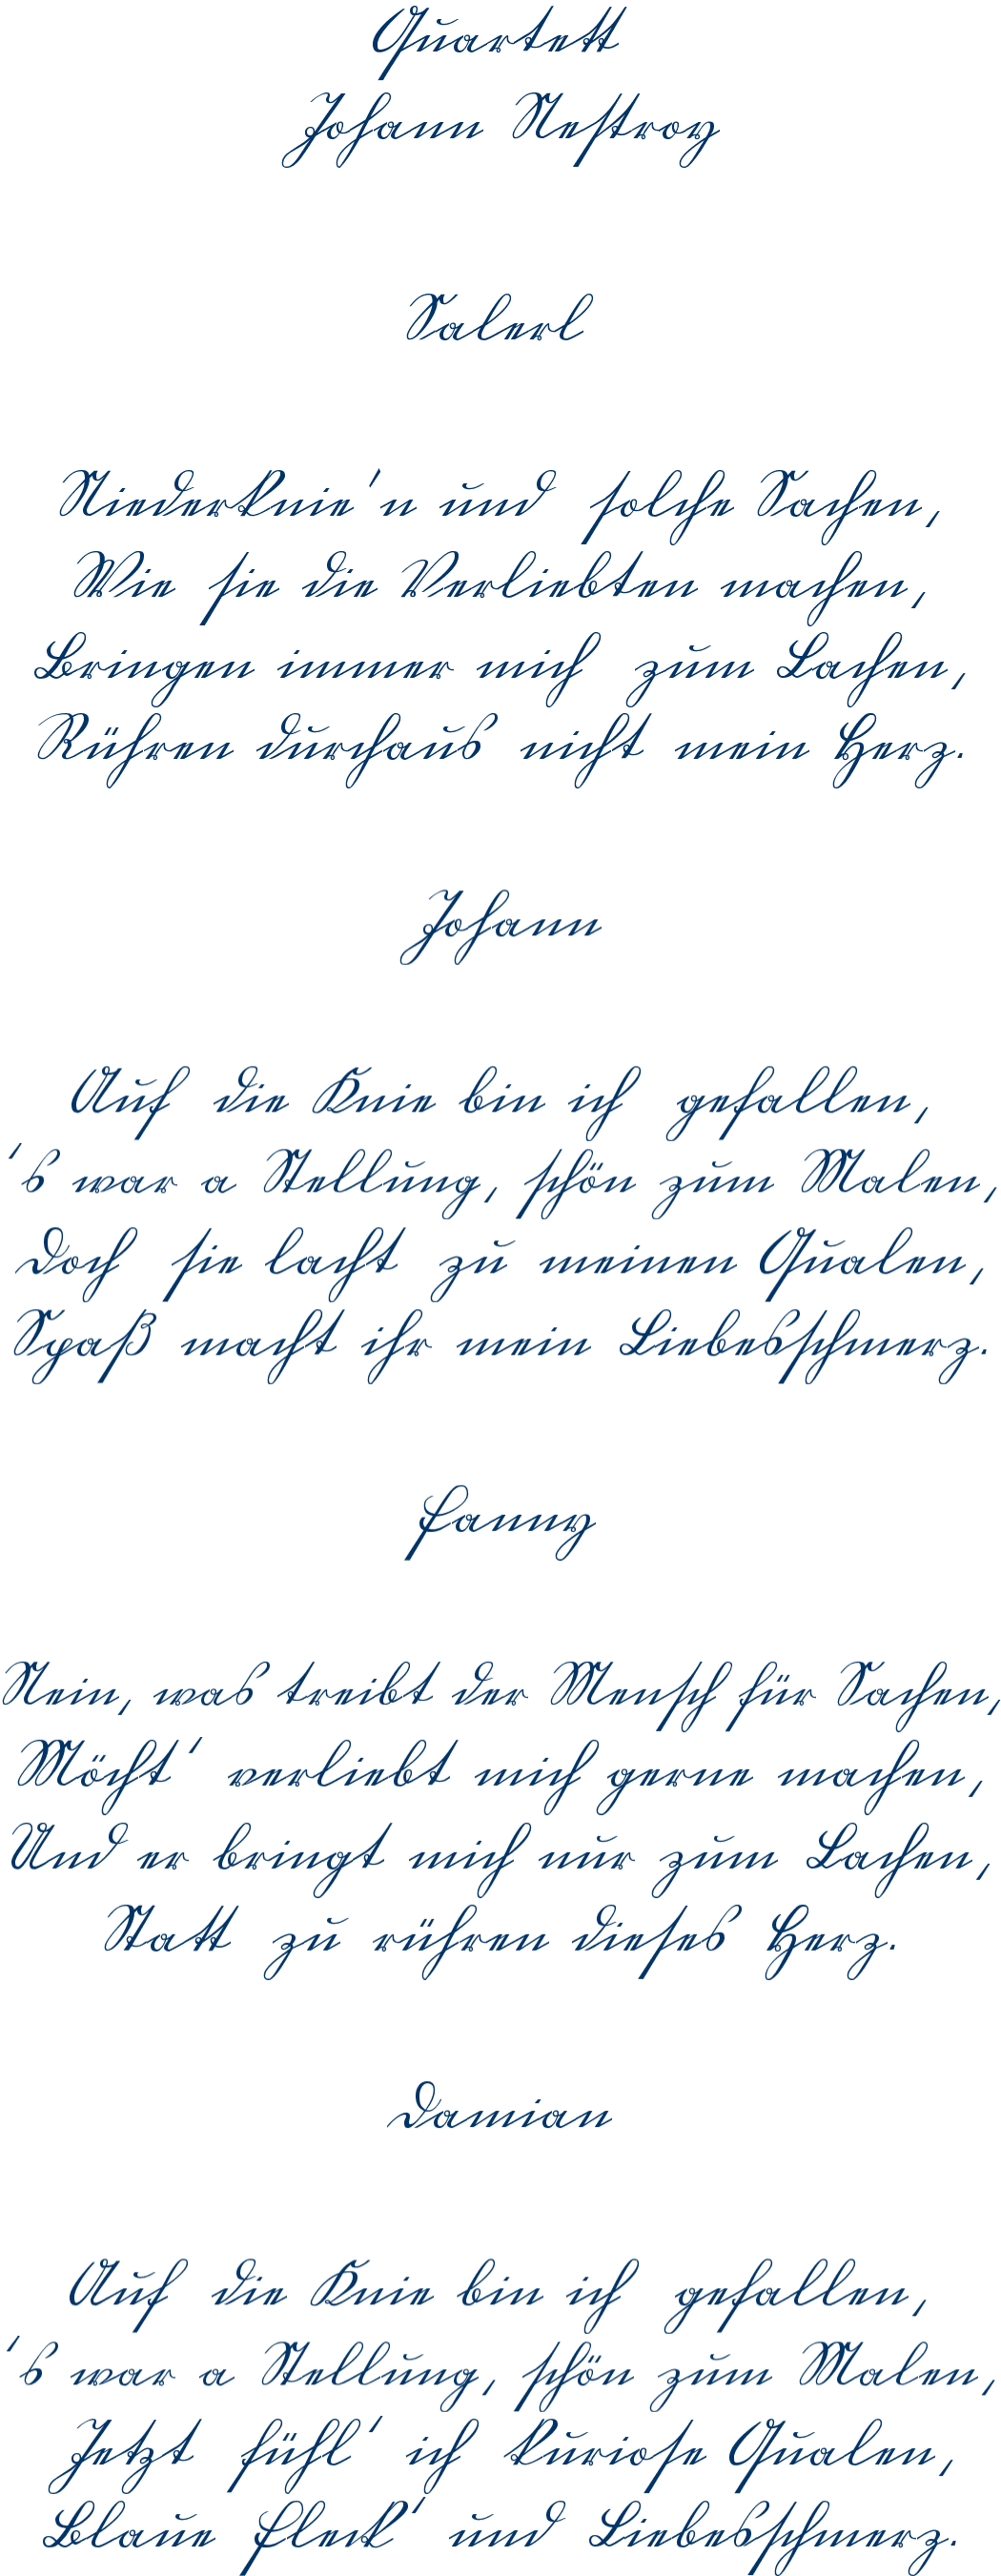 Quartett
Johann Nestroy
Salerl
Niederknie'n und solche Sachen,
Wie sie die Verliebten machen,
Bringen immer mich zum Lachen,
Rühren durchaus nicht mein Herz.
Johann
Auf die Knie bin ich gefallen,
's war a Stellung, schön zum Malen,
Doch sie lacht zu meinen Qualen,
Spaß macht ihr mein Liebesschmerz.
Fanny
Nein, was treibt der Mensch für Sachen,
Möcht' verliebt mich gerne machen,
Und er bringt mich nur zum Lachen,
Statt zu rühren dieses Herz.
Damian
Auf die Knie bin ich gefallen,
's war a Stellung, schön zum Malen,
Jetzt fühl' ich kuriose Qualen,
Blaue Fleck' und Liebesschmerz.